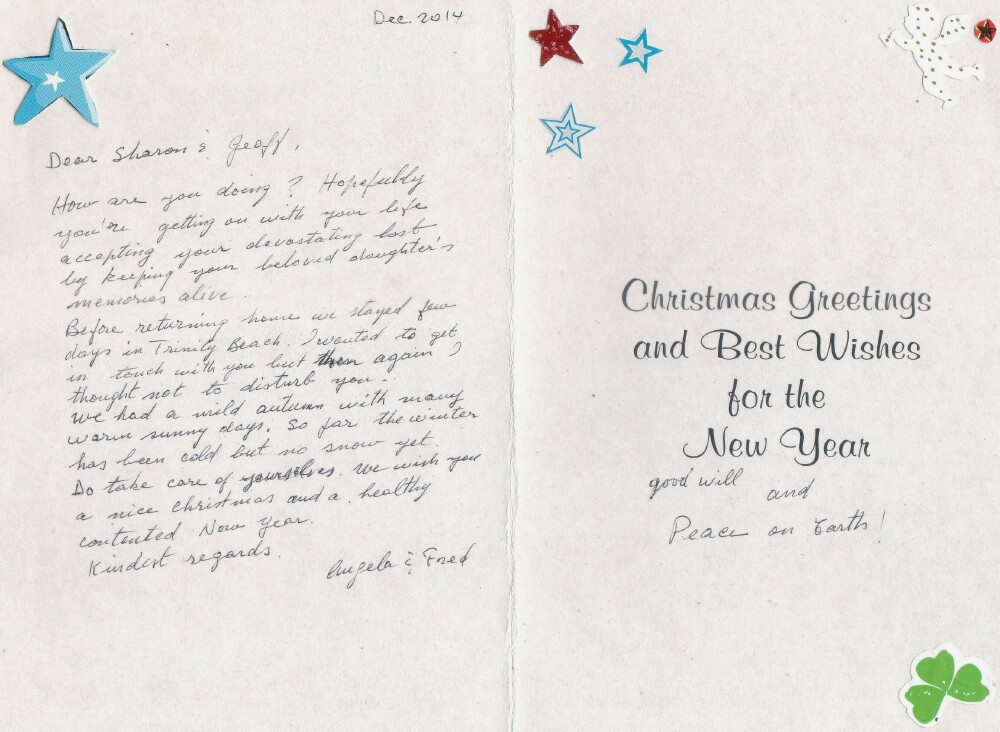 Dec. 2014
Dear Sharon & Geoff,
How are you doing? Hopefully
you're getting on with your life
accepting your devastating lost
by keeping your beloved daughter's
memories alive.
Before returning home we stayed few
days in Trinity Beach. I wanted to get
in touch with you but then again I
thought not to disturb you..
We had a mild autumn with many
warm sunny days. So far the winter
has been cold but no snow yet.
Do take care of yourselves. We wish you
a nice Christmas and a healthy
contented New Year.
Kindest regards.
Angela & Fred
Christmas Greetings
and Best Wishes
for the
New Year
good will and
Peace on Earth!